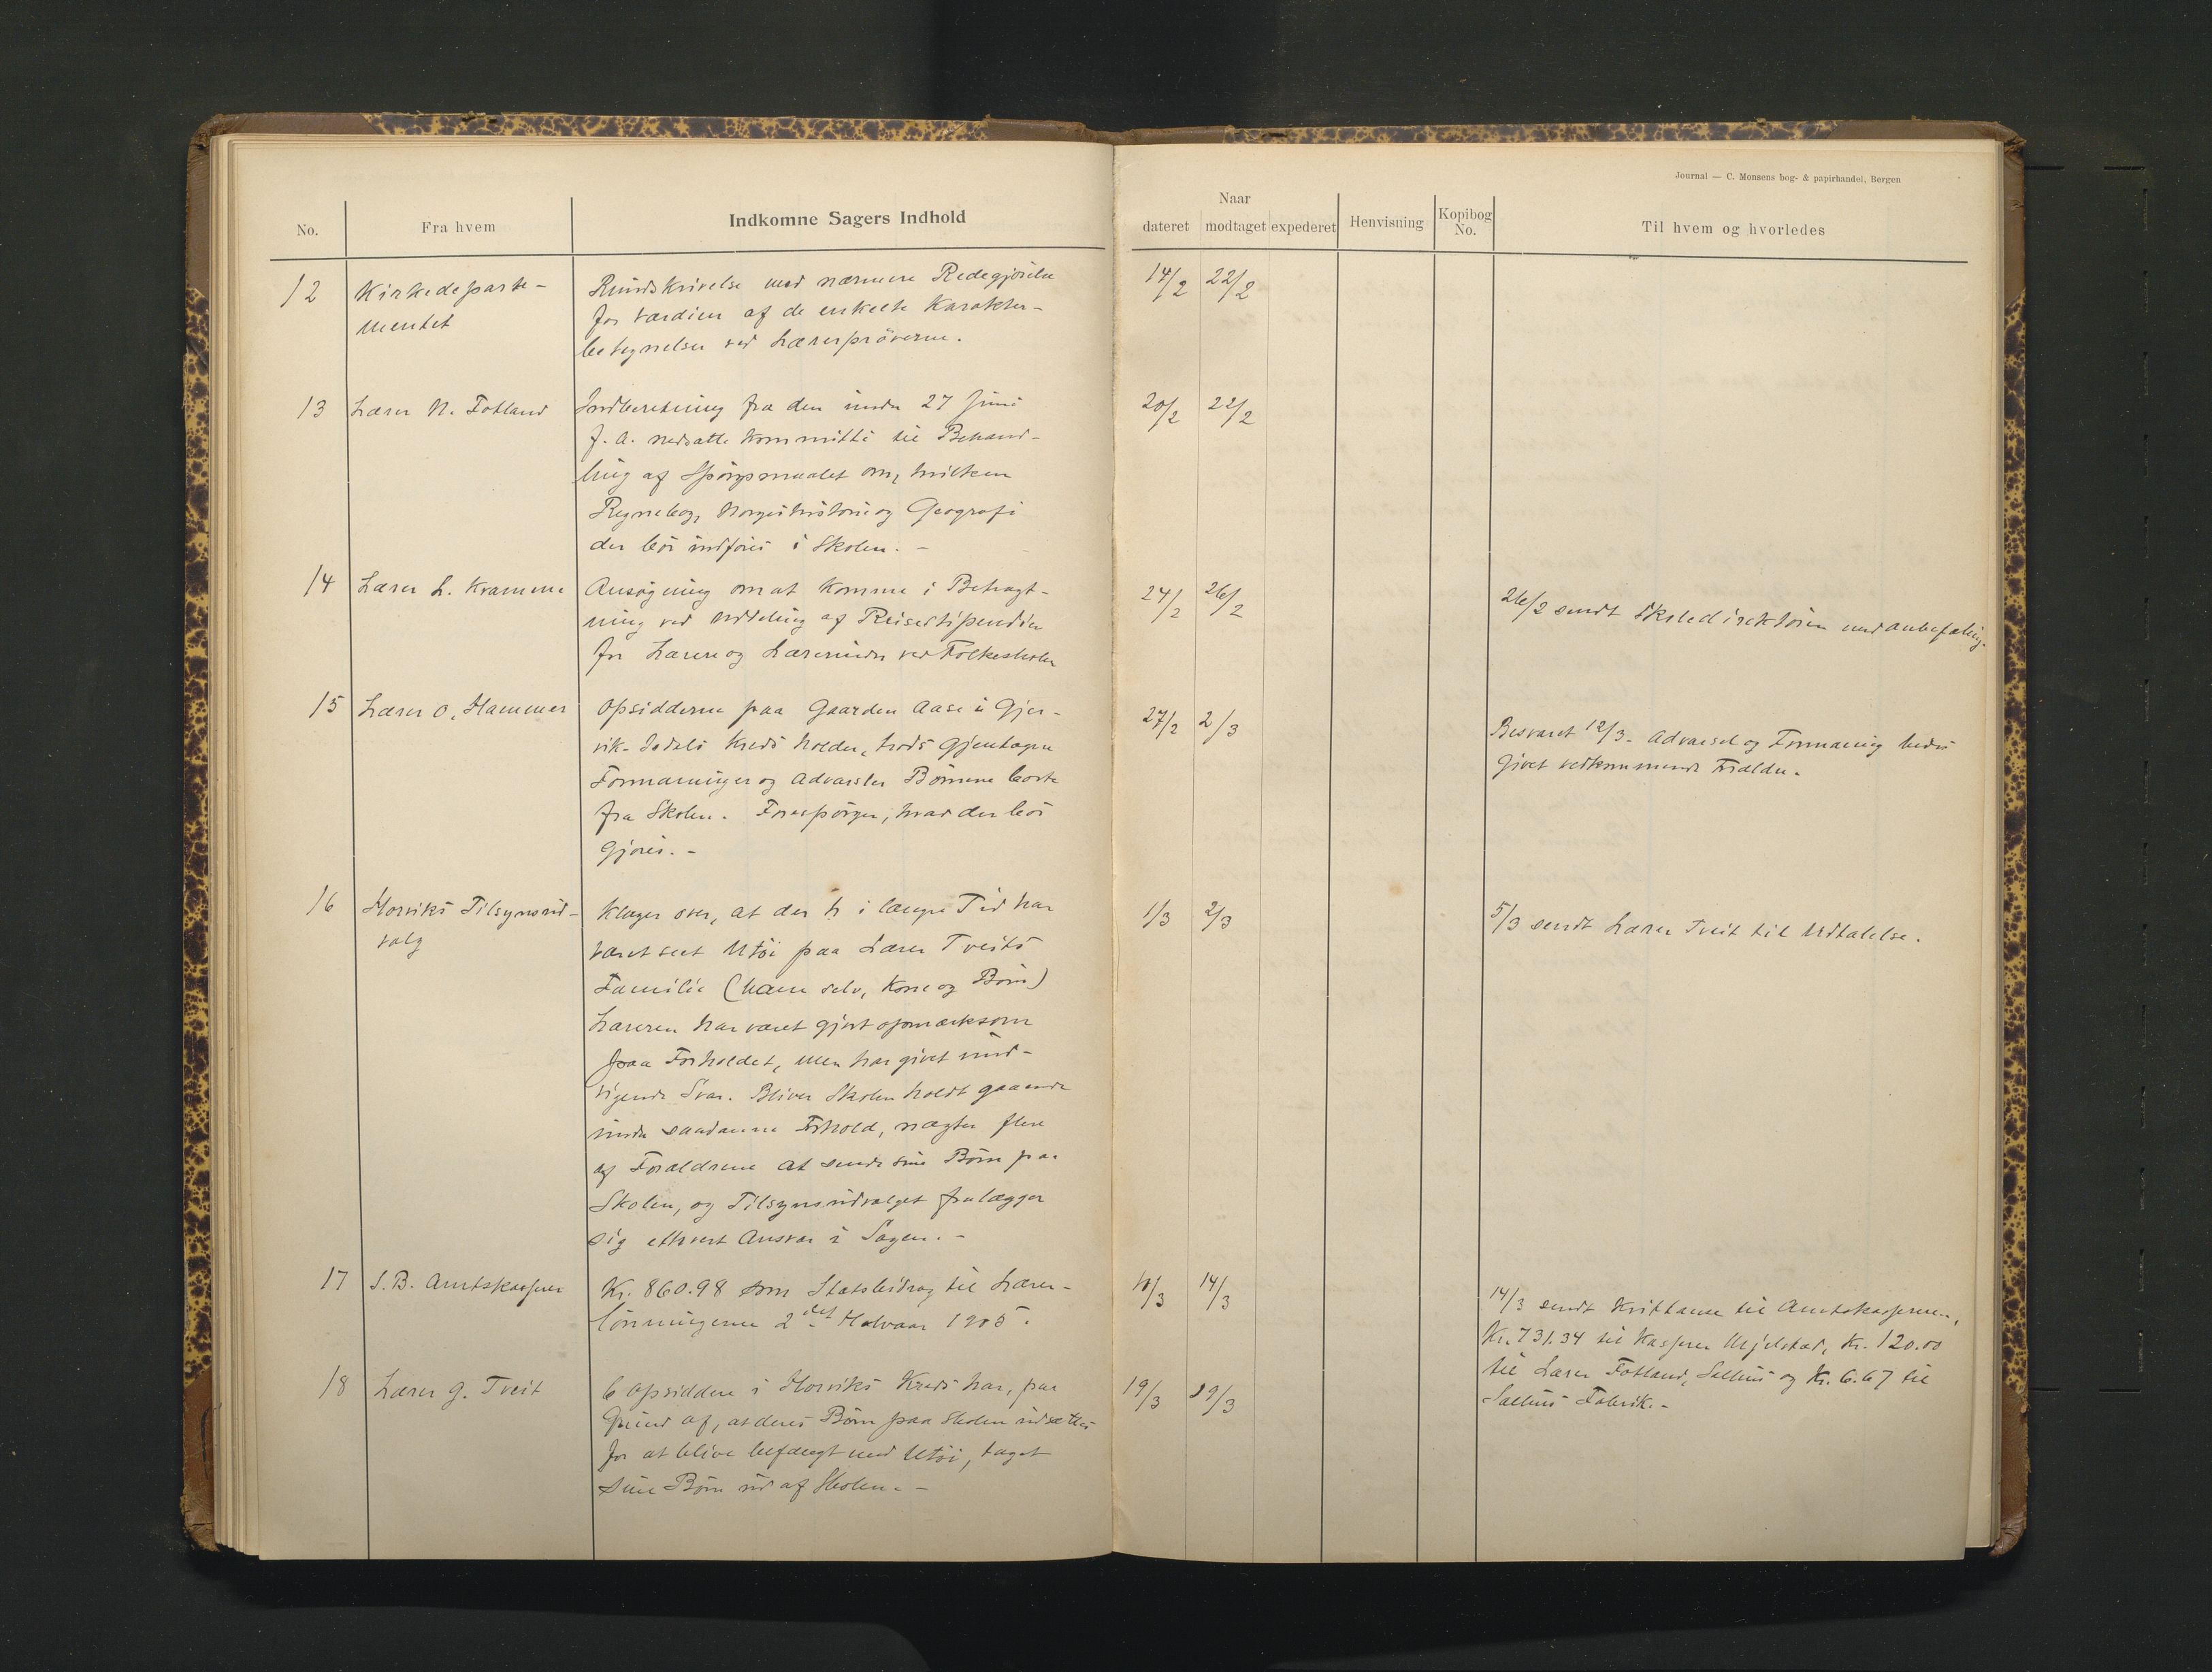 Journal — C. Monsens bog- & papirhandel, Bergen
No.
Fra hvem
Indkomne Sagers Indhold
Naar
dateret
modtaget
expederet
Henvisning
Kopibog No.
Til hvem og hvorledes
12
Kirkedeparte-
mentet
Rundskrivelse med nærmere Redegjörelse
for Værdien af de enkelte Karakter-
betegnelser ved Lærerpröverne.
14/2
22/2
13
Lærer N. Fotland
Indberetning fra den under 27 Juni
f. A. nedsatte Kommitté til Behand-
ling af Spörgsmaalet om, hvilken
Regnebog, Norgeshistorie og Geografi
der bör indföres i Skolen. -
20/2
22/2
14
Lærer L. Kramme
Ansögning om at komme i Betragt-
ning ved Uddeling af Reisestipendier
for Lærere og Lærerinder ved Folkeskolen
24/2
26/2
26/2 sendt Skoledirektören med Anbefaling.
15
Lærer O. Hammer
Opsidderne paa Gaarden Aase i Gjer-
vik-Isdals Kreds holder, trods gjentagne
Formaninger og Advarsler Börnene borte
fra Skolen. Forespörger, hvad der bör
gjöres. -
27/2
2/3
Besvaret 12/3 - Advarsel og Formaning bedes
givet vedkommende Forældre.
16
Horviks Tilsynsud-
valg
Klager over, at der i længre Tid har
været seet Utöi paa Lærer Tveits
Familie (ham selv, Kone og Börn)
Læreren har været gjort opmærksom
paa Forholdet, men har givet und-
vigende Svar. Bliver Skolen holdt gaaende
under saadanne Forhold, nægter flere
af Forældrene at sende sine Börn paa
Skolen, og Tilsynsudvalget fralægger
sig ethvert Ansvar i Sagen. -
1/3
2/3
5/3 sendt Lærer Tveit til Udtalelse.
17
S. B. Amtskasserer
Kr. 860.98 som Statsbidrag til Lærer-
lönningerne 2det Halvaar 1905.
10/3
14/3
14/3 sendt Kvittance til Amtskassereren,
Kr. 731.34 til Kasserer Mjelstad, Kr. 120.00
til Lærer Fotland, Salhus og Kr. 6.67 til
Salhus Fabrik. -
18
Lærer G. Tveit
6 Opsiddere i Horviks Kreds har, paa
Grund af, at deres Börn paa Skolen udsættes
for at blive befængt med Utöi, taget
sine Börn ud af Skolen. -
19/3
29/3